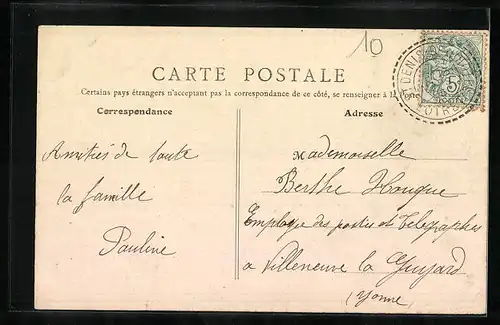 10
CARTE POSTALE
Certains pays étrangers n'acceptant pas la correspondance de ce côté, se renseigner à la Poste
Correspondance
Adresse
Amitiés de toute
la famille
Pauline
Mademoiselle
Berthe
Employée des postes et Télégraphes
a Villeneuve la Guyard
(Yonne)
5